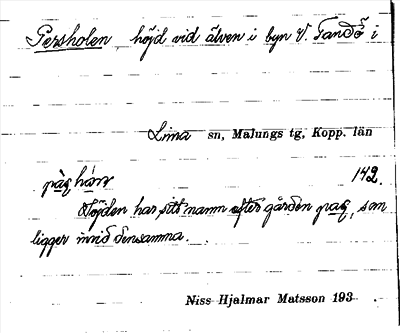 Persholen höjd vid älven i byn V. Tandö i
Lima sn, Malungs tg, Kopp. län
142.
Höjden har sitt namn efter gården som
ligger invid densamma.
Niss Hjalmar Matsson 193